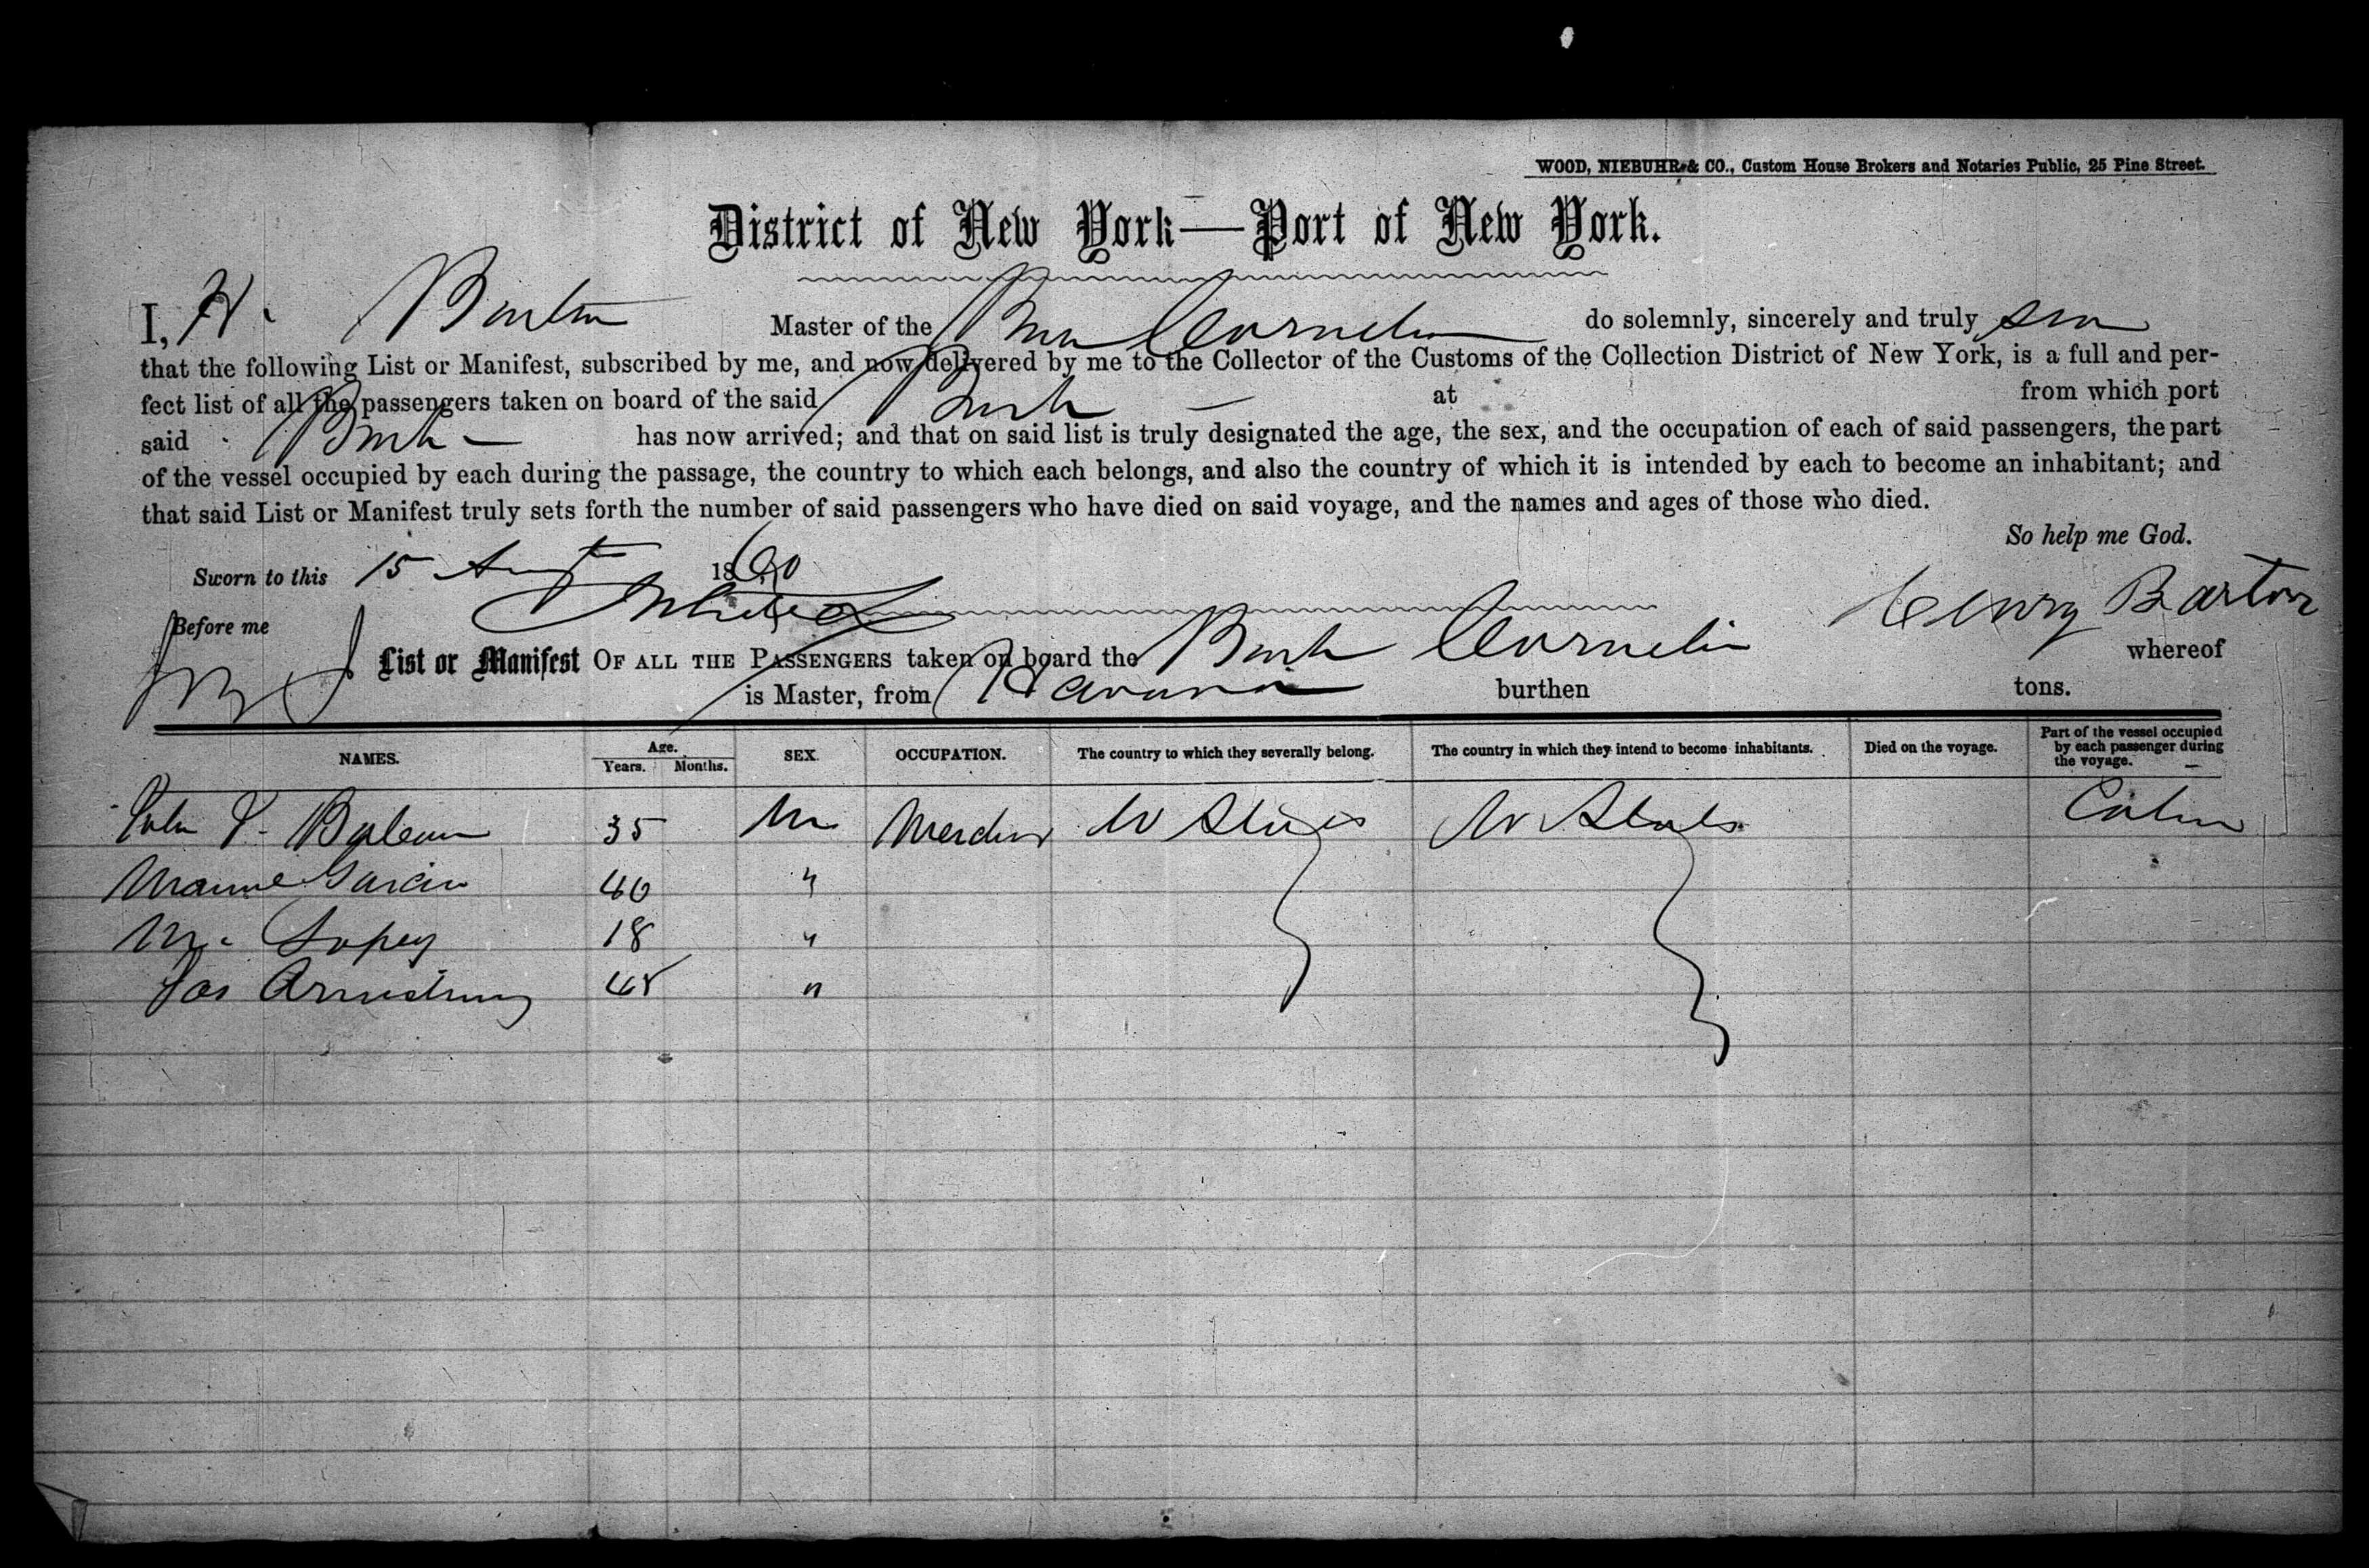 WOOD, NIEBUHR & CO., Custom House Brokers and Notaries Public, 25 Pine Street.
District of New York—Port of New York.
I, H. Barton Master of the Bark Cornelia do solemnly, sincerely and truly
that the following List or Manifest, subscribed by me, and now delivered by me to the Collector of the Customs of the Collection District of New York, is a full and per-
fect list of all the passengers taken on board of the said Bark at from which port
said Bark has now arrived; and that on said list is truly designated the age, the sex, and the occupation of each of said passengers, the part
of the vessel occupied by each during the passage, the country to which each belongs, and also the country of which it is intended by each to become an inhabitant; and
that said List or Manifest truly sets forth the number of said passengers who have died on said voyage, and the names and ages of those who died.
So help me God.
Sworn to this 15 Augt 1860
Before me Henry Barton
List or Manifest OF ALL THE PASSENGERS taken on board the Bark Cornelia whereof
is Master, from Havana burthen tons.
NAMES. Age. Years. Months. SEX. OCCUPATION. The country to which they severally belong. The country in which they intend to become inhabitants. Died on the voyage. Part of the vessel occupied by each passenger during the voyage.
John 35 M U States U States Cabin
40 "
M. Lopez 18 "
Jas Armstrong 45 "